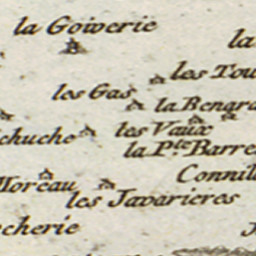 la Goiverie
la
les Tou
les Gas
la Renard
les Vaux
chuche
la P.te Barre
Connil
Moreau
les Javarieres
cherie